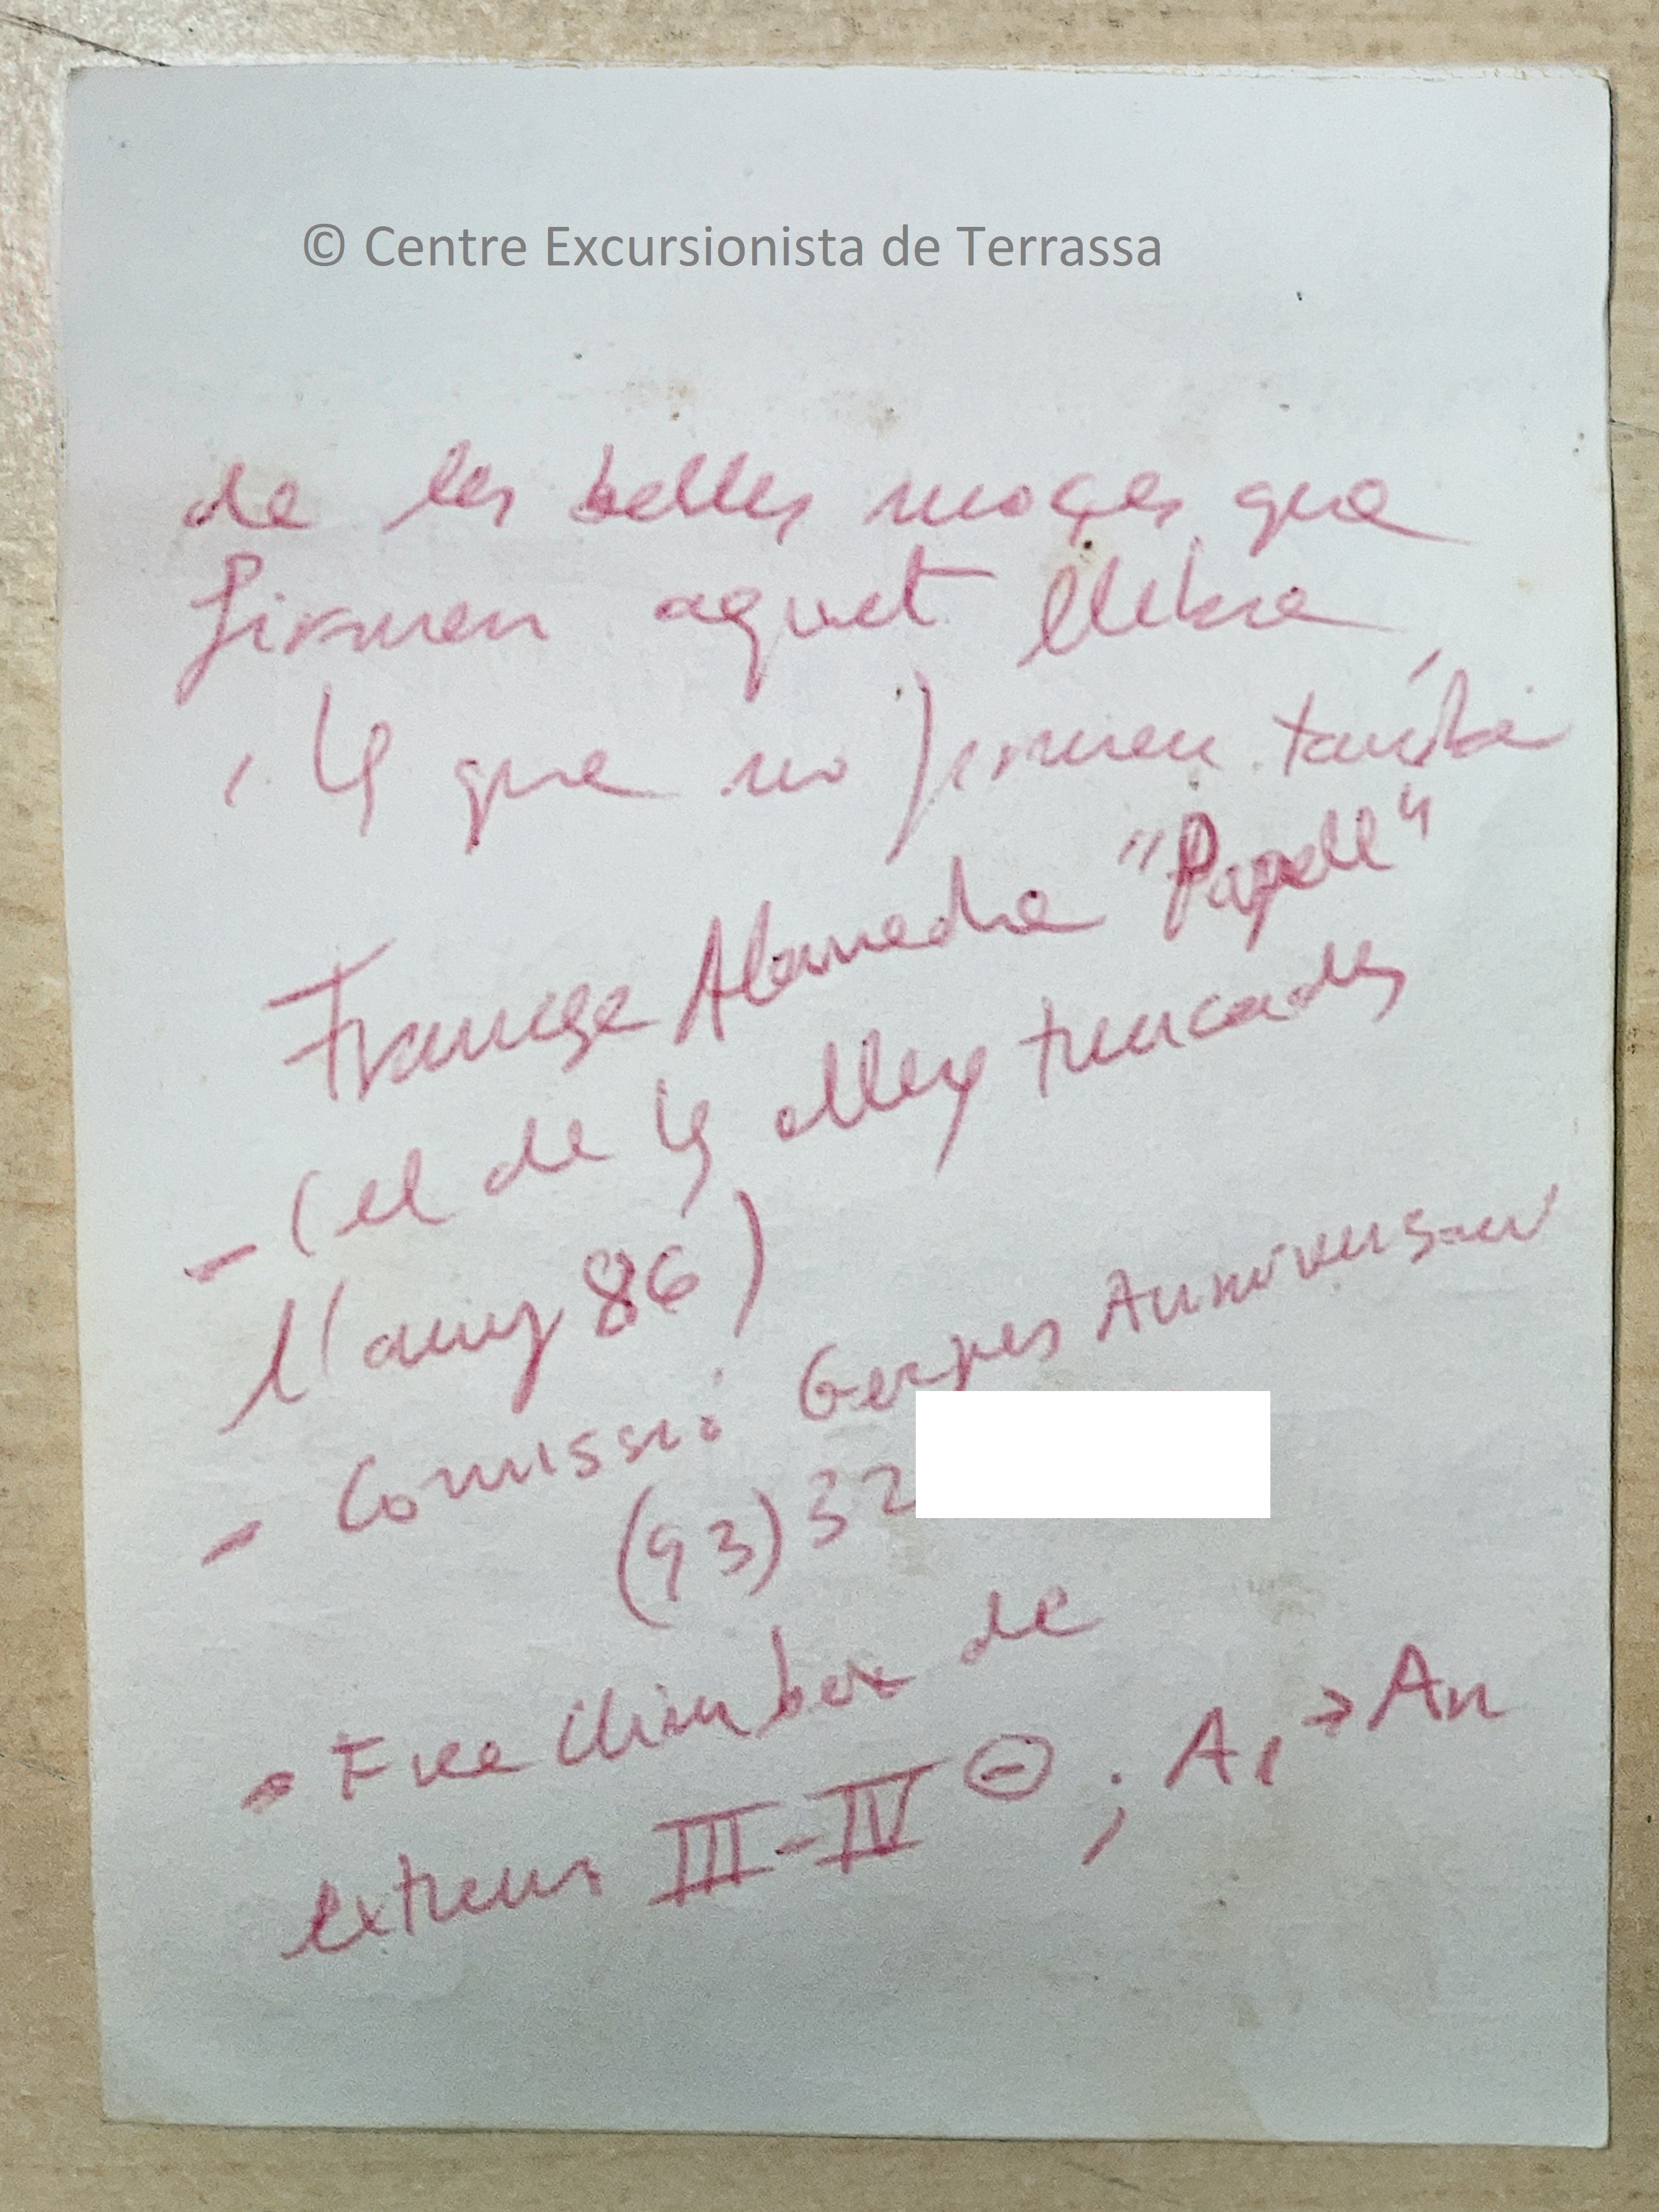 © Centre Excursionista de Terrassa
de les belles moçes que
firmen aquet llibre,
i les que no firmen també
Francesc "Papell"
- (el de les trencades
l'any 86)
- Comissió Anniversari
(93) 32
- Free Climber de
extrem III-IV ⊖; A1 → An